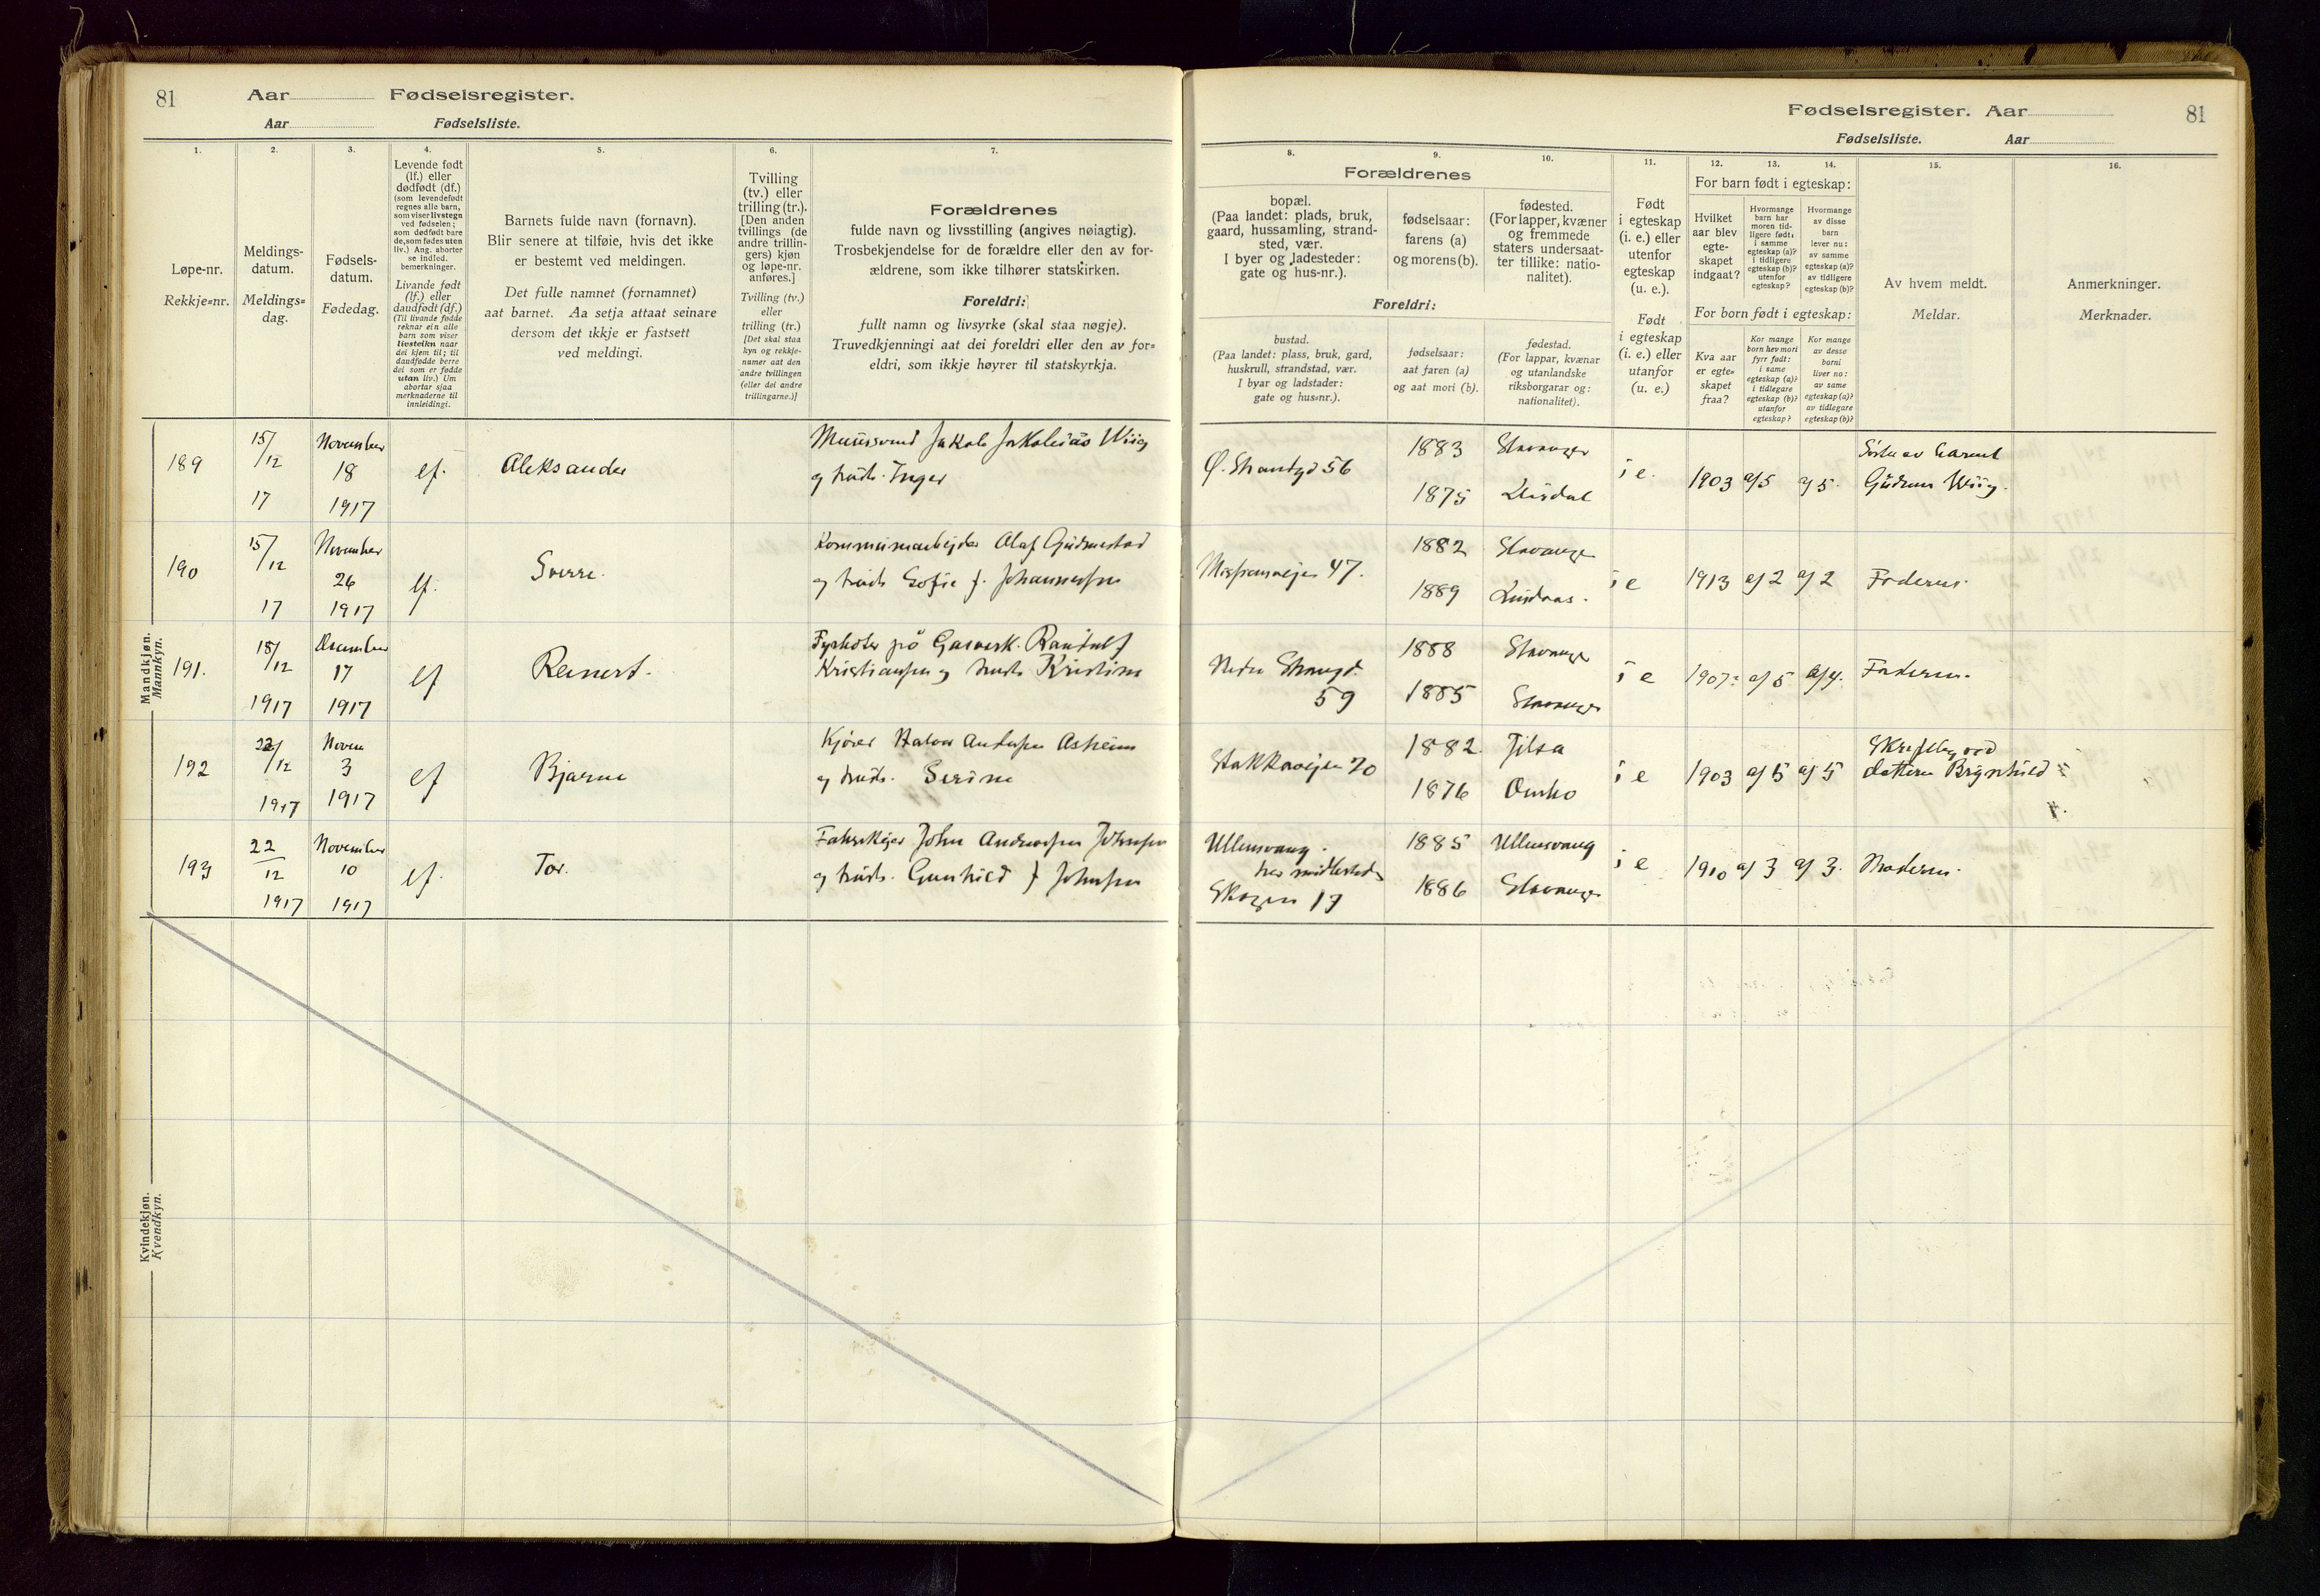 81
Aar Fødselsregister.
Aar Fødselsliste.
1.
2.
3.
4.
5.
6.
7.
Løpe-nr.
Rekkje=nr.
Meldings-
datum.
Meldings=
dag.
Fødsels-
datum.
Fødedag.
Levende født
(lf.) eller
dødfødt (df.)
(som levendefødt
regnes alle barn,
som viser livstegn
ved fødselen;
som dødfødt bare
de, som fødes uten
liv.) Ang. aborter
se indled.
bemerkninger.
Livande født
(lf.) eller
daudfødt (df.)
(Til livande fødde
reknar ein alle
barn som viser
livsteikn naar
dei kjem til; til
daudfødde berre
dei som er fødde
utan liv.) Um
abortar sjaa
merknaderne til
innleidingi.
Barnets fulde navn (fornavn).
Blir senere at tilføie, hvis det ikke
er bestemt ved meldingen.
Det fulle namnet (fornamnet)
aat barnet. Aa setja attaat seinare
dersom det ikkje er fastsett
ved meldingi.
Tvilling
(tv.) eller
trilling (tr.).
[Den anden
tvillings (de
andre trillin-
gers) kjøn
og løpe-nr.
anføres.]
Tvilling (tv.)
eller
trilling (tr.)
[Det skal staa
kyn og rekkje-
numer aat den
andre tvillingen
(eller dei andre
trillingarne.)]
Forældrenes
fulde navn og livsstilling (angives nøiagtig).
Trosbekjendelse for de forældre eller den av for-
ældrene, som ikke tilhører statskirken.
Foreldri:
fullt namn og livsyrke (skal staa nøgje).
Truvedkjenningi aat dei foreldri eller den av for=
eldri, som ikkje høyrer til statskyrkja.
Mandkjøn.
Mannkyn.
189
15/12
17
November
18
1917
lf.
Aleksander
Jakob Jakobsen Wiig
og hust. Inger
190
15/12
17
November
26
1917
lf.
Sverre.
Olaf Gudmestad
og hust. Sofie f. Johannessen
191.
18/12
1917
December
17
1917
lf
Reinert.
Fyrbøter på Gasverk. Randulf
Kristiansen og hust. Kristine
192
22/12
1917
Novem
3
1917
lf
Bjarne
Kjører Halvor Andersen Asheim
og hust. Serine
193
22
12
1917
November
10
1917
lf.
Tor.
John Andreassen Johnsen
og hust. Gunhild f Johnsen
Kvindekjøn.
Kvendkyn.
Fødselsregister. Aar
81
Fødselsliste. Aar
8.
9.
10.
11.
12.
13.
14.
15.
16.
Forældrenes
bopæl.
(Paa landet: plads, bruk,
gaard, hussamling, strand-
sted, vær.
I byer og ladesteder:
gate og hus-nr.).
fødselsaar:
farens (a)
og morens (b).
fødested.
(For lapper, kvæner
og fremmede
staters undersaat-
ter tillike: natio-
nalitet).
Foreldri:
bustad.
(Paa landet: plass, bruk, gard,
huskrull, strandstad, vær.
I byar og ladstader:
gate og hus=nr.).
fødselsaar:
aat faren (a)
og aat mori (b).
fødestad.
(For lappar, kvænar
og utanlandske
riksborgarar og:
nationalitet).
Født
i egteskap
(i. e.) eller
utenfor
egteskap
(u. e.).
Født
i egteskap
(i. e.) eller
utanfor
(u. e.)
For barn født i egteskap:
Hvilket
aar blev
egte-
skapet
indgaat?
Hvormange
barn har
moren tid-
ligere født:
i samme
egteskap (a)?
i tidligere
egteskap (b)?
utenfor
egteskap?
Hvormange
av disse
barn
lever nu:
av samme
egteskap (a)?
av tidligere
egteskap (b)?
For born født i egteskap:
Kva aar
er egte=
skapet
fraa?
Kor mange
born hev mori
fyrr født:
i same
egteskap (a)?
i tidlegare
egteskap (b)?
utanfor
egteskap?
Kor mange
av desse
borni
liver no:
av same
egteskap (a)?
av tidlegare
egteskap (b)?
Av hvem meldt.
Meldar.
Anmerkninger.
Merknader.
Ø. Strandgd 56
1883
1875
Stavanger
i e.
1903
a/5
a/5.
Søster av barnet
Gudrun Wiig.
Misjonsveien 47.
1882
1889
Stavanger
Lindaas.
i e
1913
a/2
a/2
Faderen.
Nedre Strandgd.
59
1888
1885
Stavanger
Stavanger
i e
1907.
a/5
a/4.
Faderen.
Stokkaveien 70
1882.
1876
Jelsa
Ombo
i e
1903
a/5
a/5
Skriftlig ved
datteren Brynhild
Ullensvang.
her midlertidig
Skogen 17
1885
1886
Ullensvang
Stavanger
i e
1910
a/3
a/3.
Moderen.